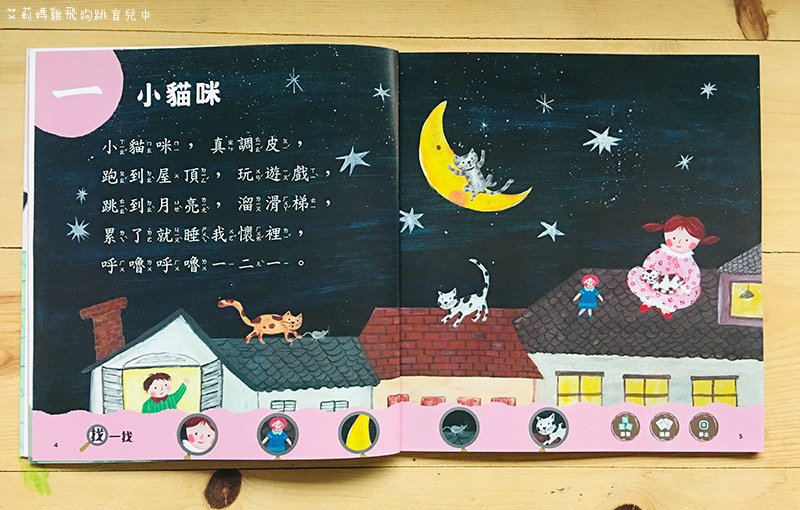 艾莉媽雞飛狗跳育兒巾
一
小貓咪
小貓咪，真調皮，
跑到屋頂，玩遊戲，
跳到月亮，溜滑梯，
累了就睡我懷裡，
呼嚕呼嚕一二一。
4
找一找
5